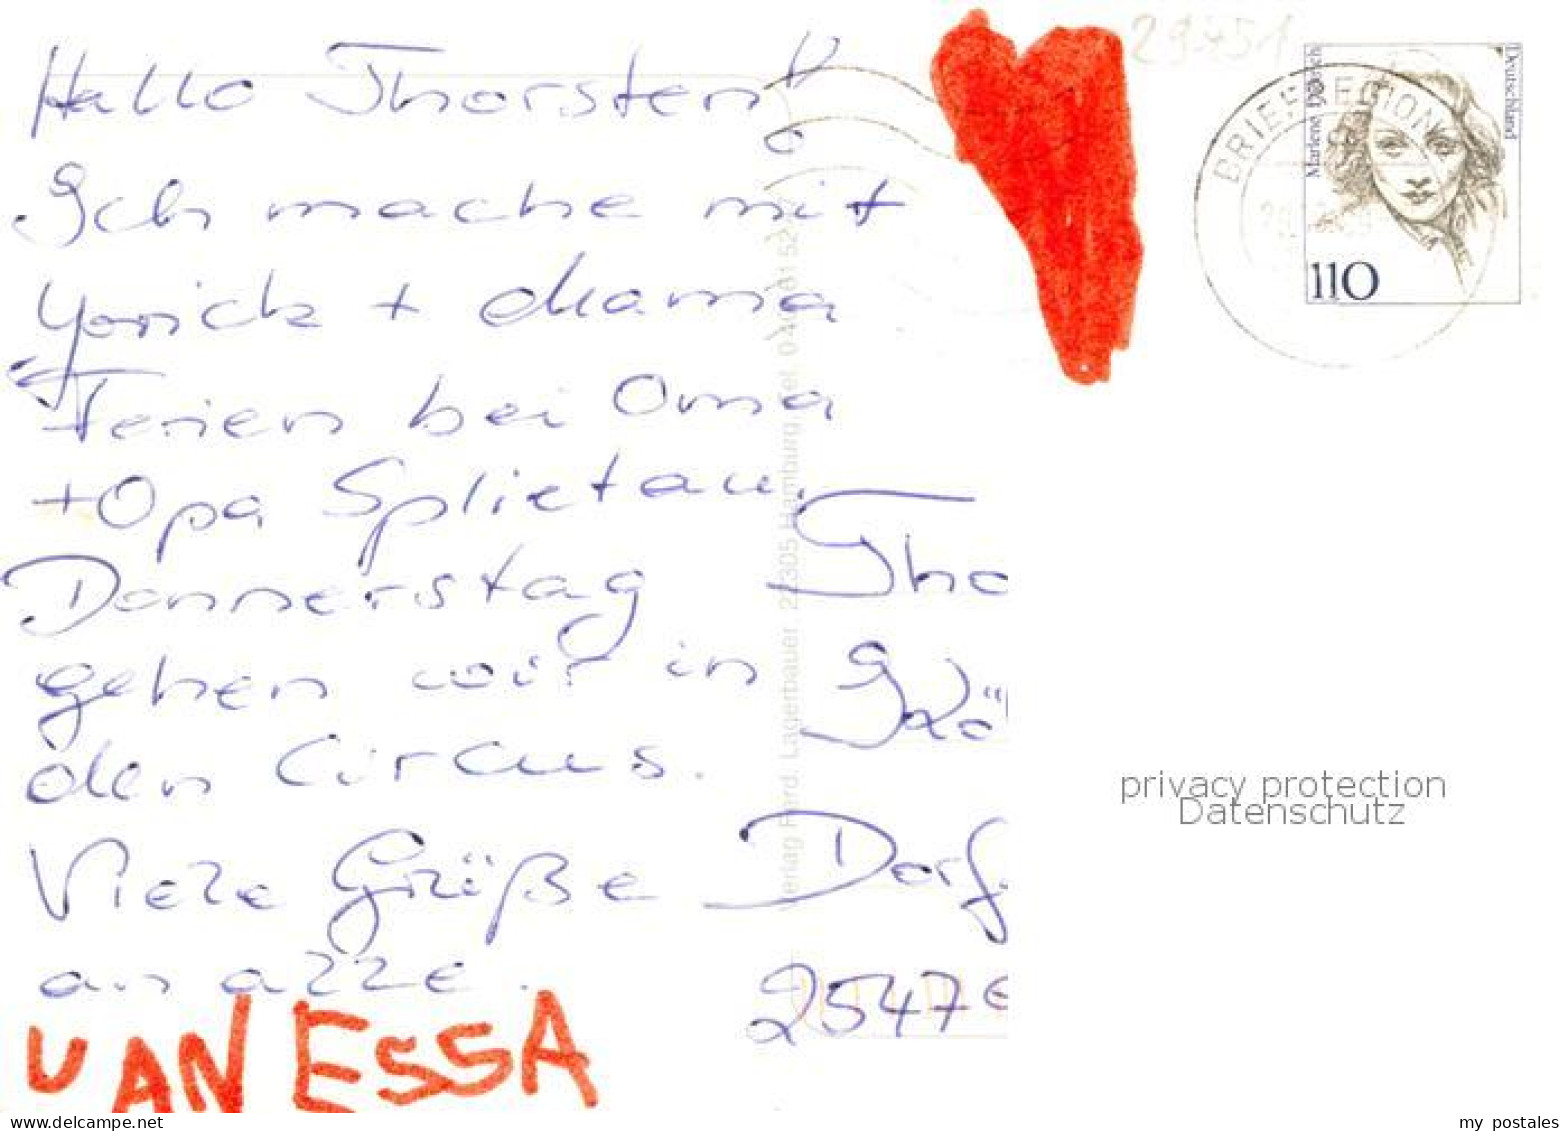 Hallo Thorsten!
Ich mache mit
Yorick + Mama
Ferien bei Oma
+ Opa Splietau.
Donnerstag
gehen wir in
den Circus.
Viele Grüße
an alle.
VANESSA
Tho
Dorf
2547
29451
Verlag Ferd. Lagerbauer 22305 Hamburg
BRIEFREGION
Marlene Dietrich
Deutschland
110
privacy protection
Datenschutz
delcampe.net
my_postales